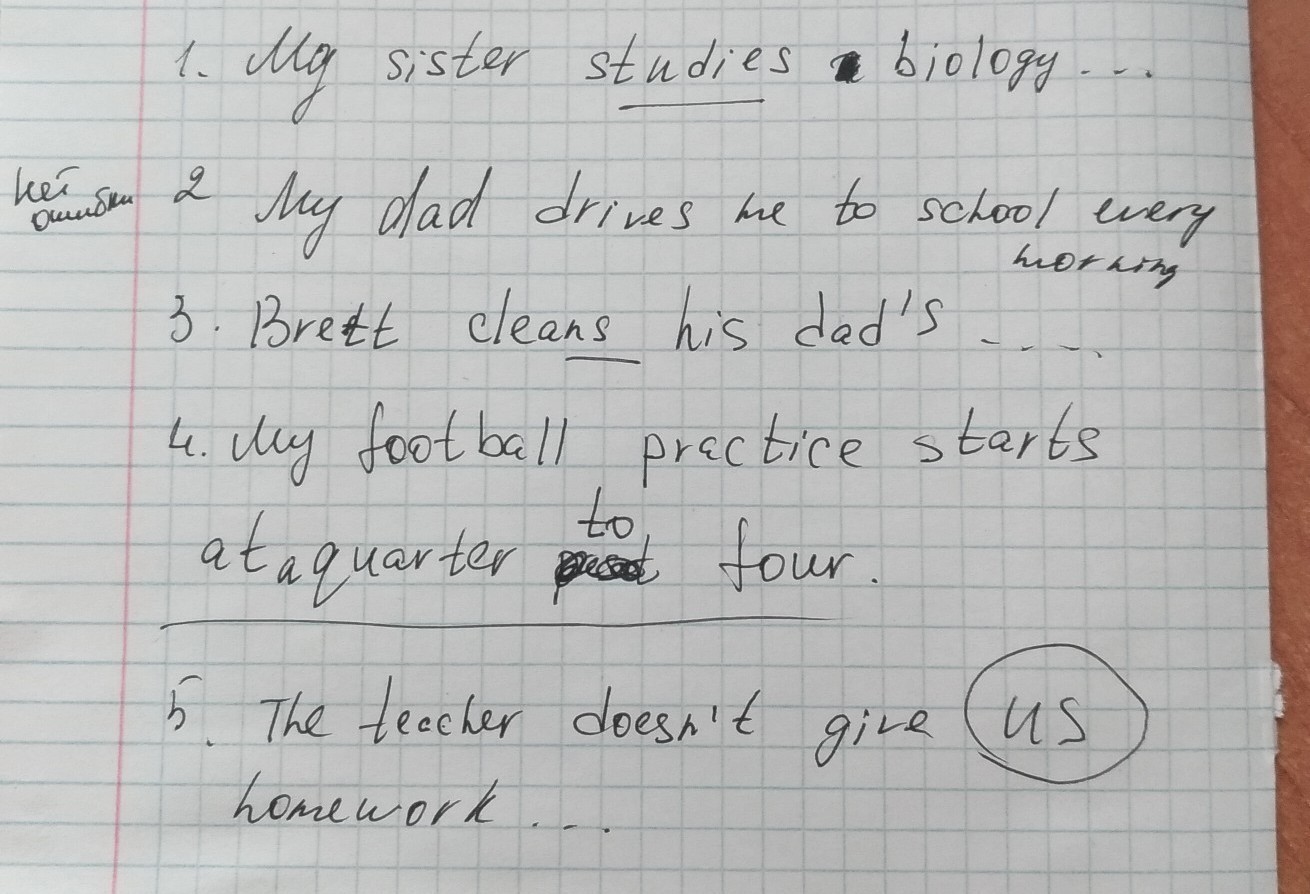 1. My sister studies biology...
нет
ошибки
2 My dad drives me to school every
morning
3. Brett cleans his dad's ....
4. My football practice starts
at a quarter to four.
5. The teacher doesn't give us
homework ...